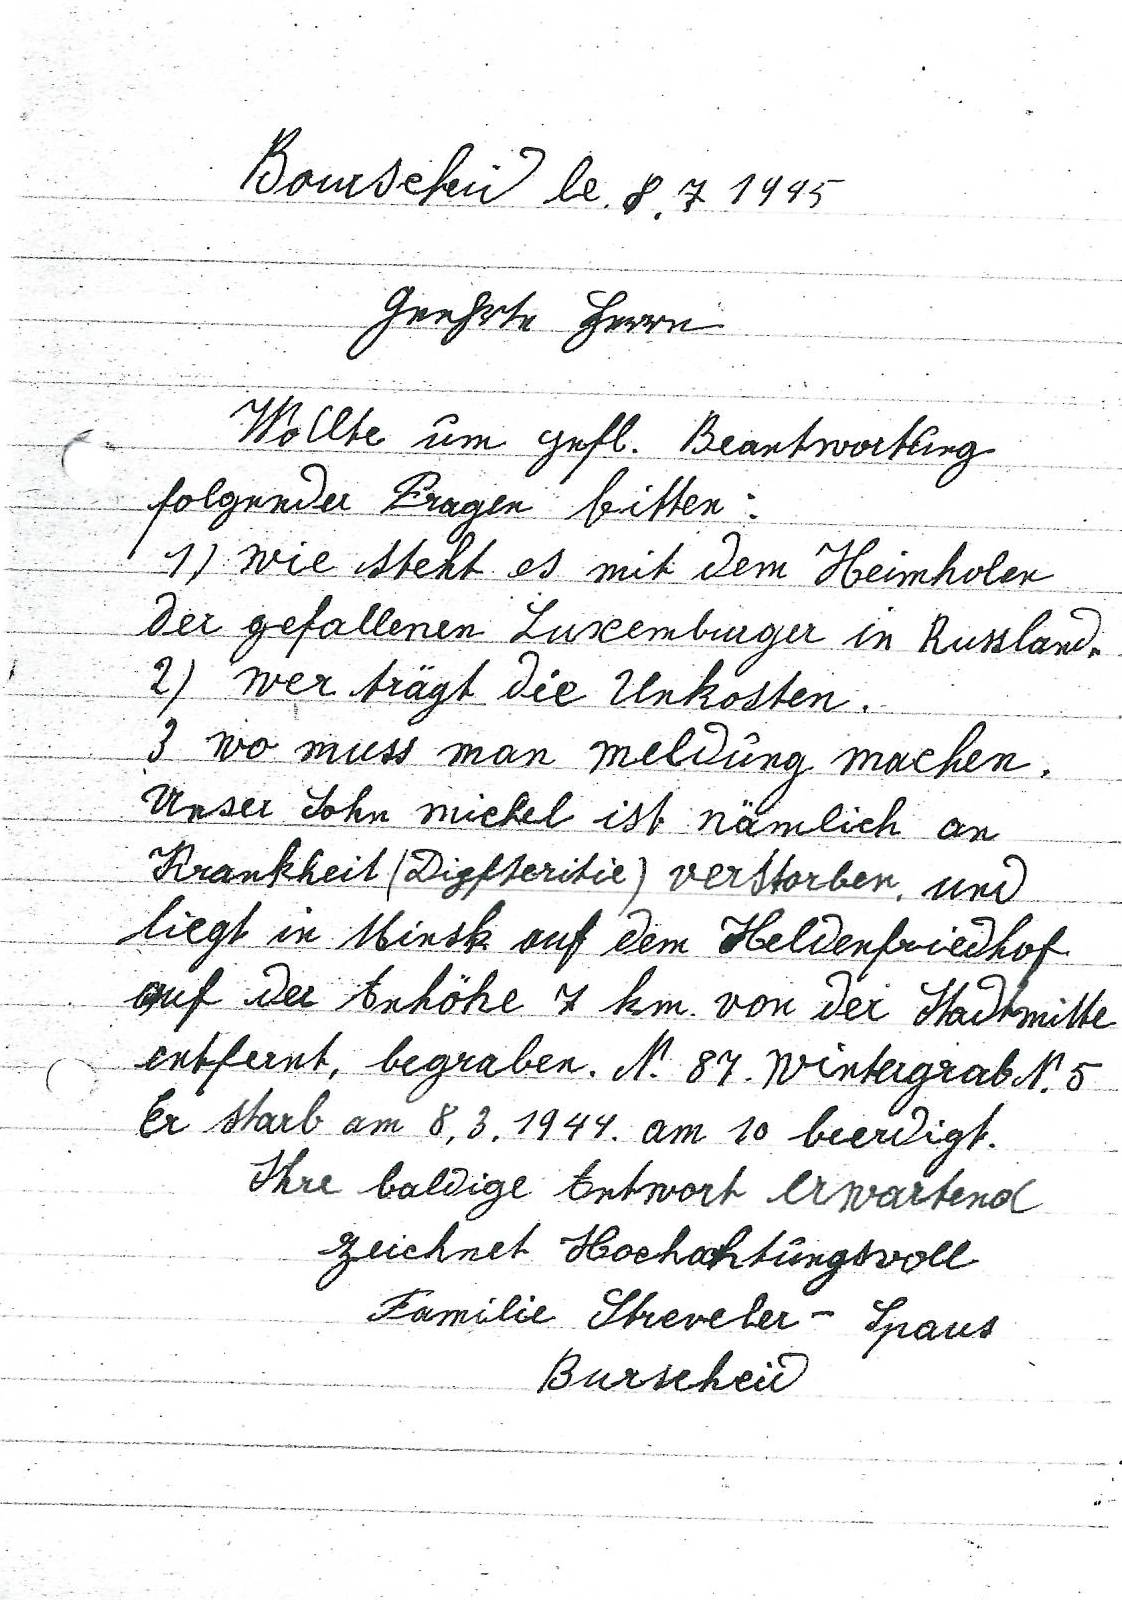 Bourscheid le. 8.7 1945
Geehrte Herrn
Wollte um gefl. Beantwortung
folgender Fragen bitten:
1) wie steht es mit dem Heimholen
der gefallenen Luxemburger in Russland.
2) wer trägt die Unkosten.
3 wo muss man meldung machen.
Unser Sohn michel ist nämlich an
Krankheit (Digfteritie) verstorben, und
liegt in Minsk auf dem Heldenfriedhof
auf der Anhöhe 7 km. von der Stadtmitte
entfernt, begraben. N. 87. Wintergrab N. 5
Er starb am 8.3.1944. am 10 beerdigt.
Ihre baldige Antwort erwartend
zeichnet Hochachtungsvoll
Familie Streveler - Spaus
Burscheid